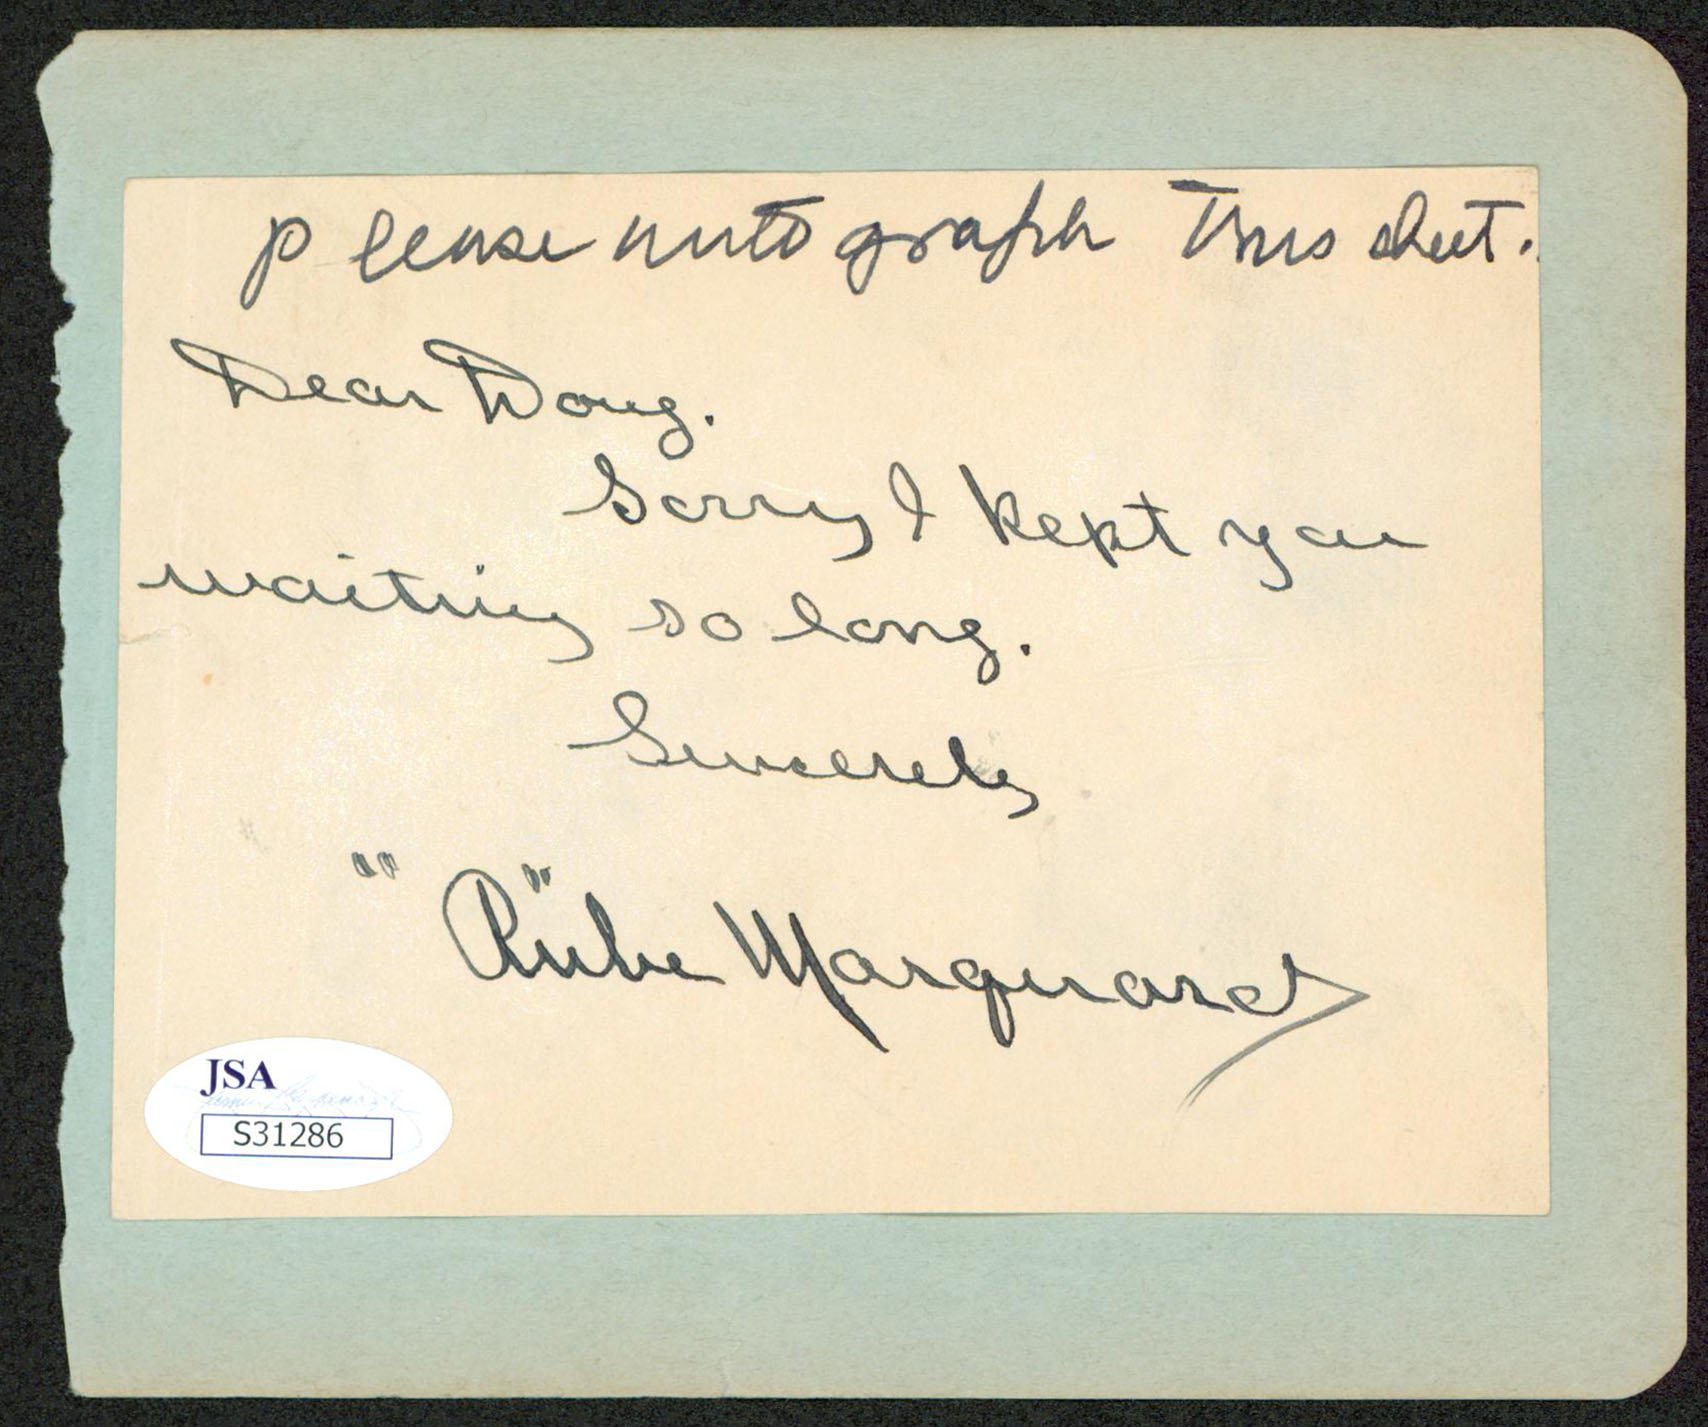 please autograph this sheet.
Dear Doug.
Sorry I kept you
waiting so long.
Sincerely
"Rube" Marquard
JSA
S31286